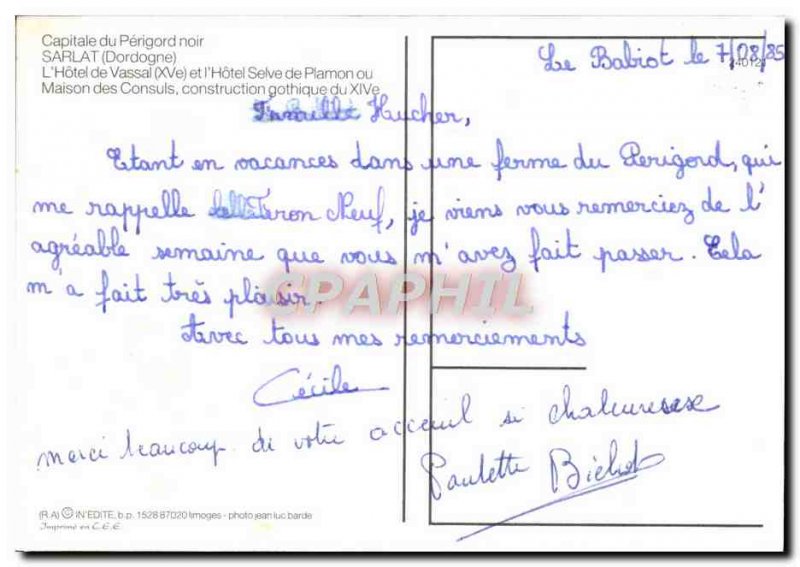 Capitale du Périgord noir
SARLAT (Dordogne)
L'Hôtel de Vassal (XVe) et l'Hôtel Selve de Plamon ou
Maison des Consuls, construction gothique du XIVe
Le Babiot le 7/08/85
Famille Hucher,
Etant en vacances dans une ferme du Perigord, qui
me rappelle Neuf, je viens vous remerciez de l'
agréable semaine que vous m'avez fait passer. Cela
m'a fait très plaisir.
CPAPHIL
Avec tous mes remerciements
Cécile
merci beaucoup de votre acceuil si chaleureuse
Paulette
(R.A) © IN'EDITE, b.p. 1528 87020 limoges - photo jean luc barde
Imprimé en C.E.E.